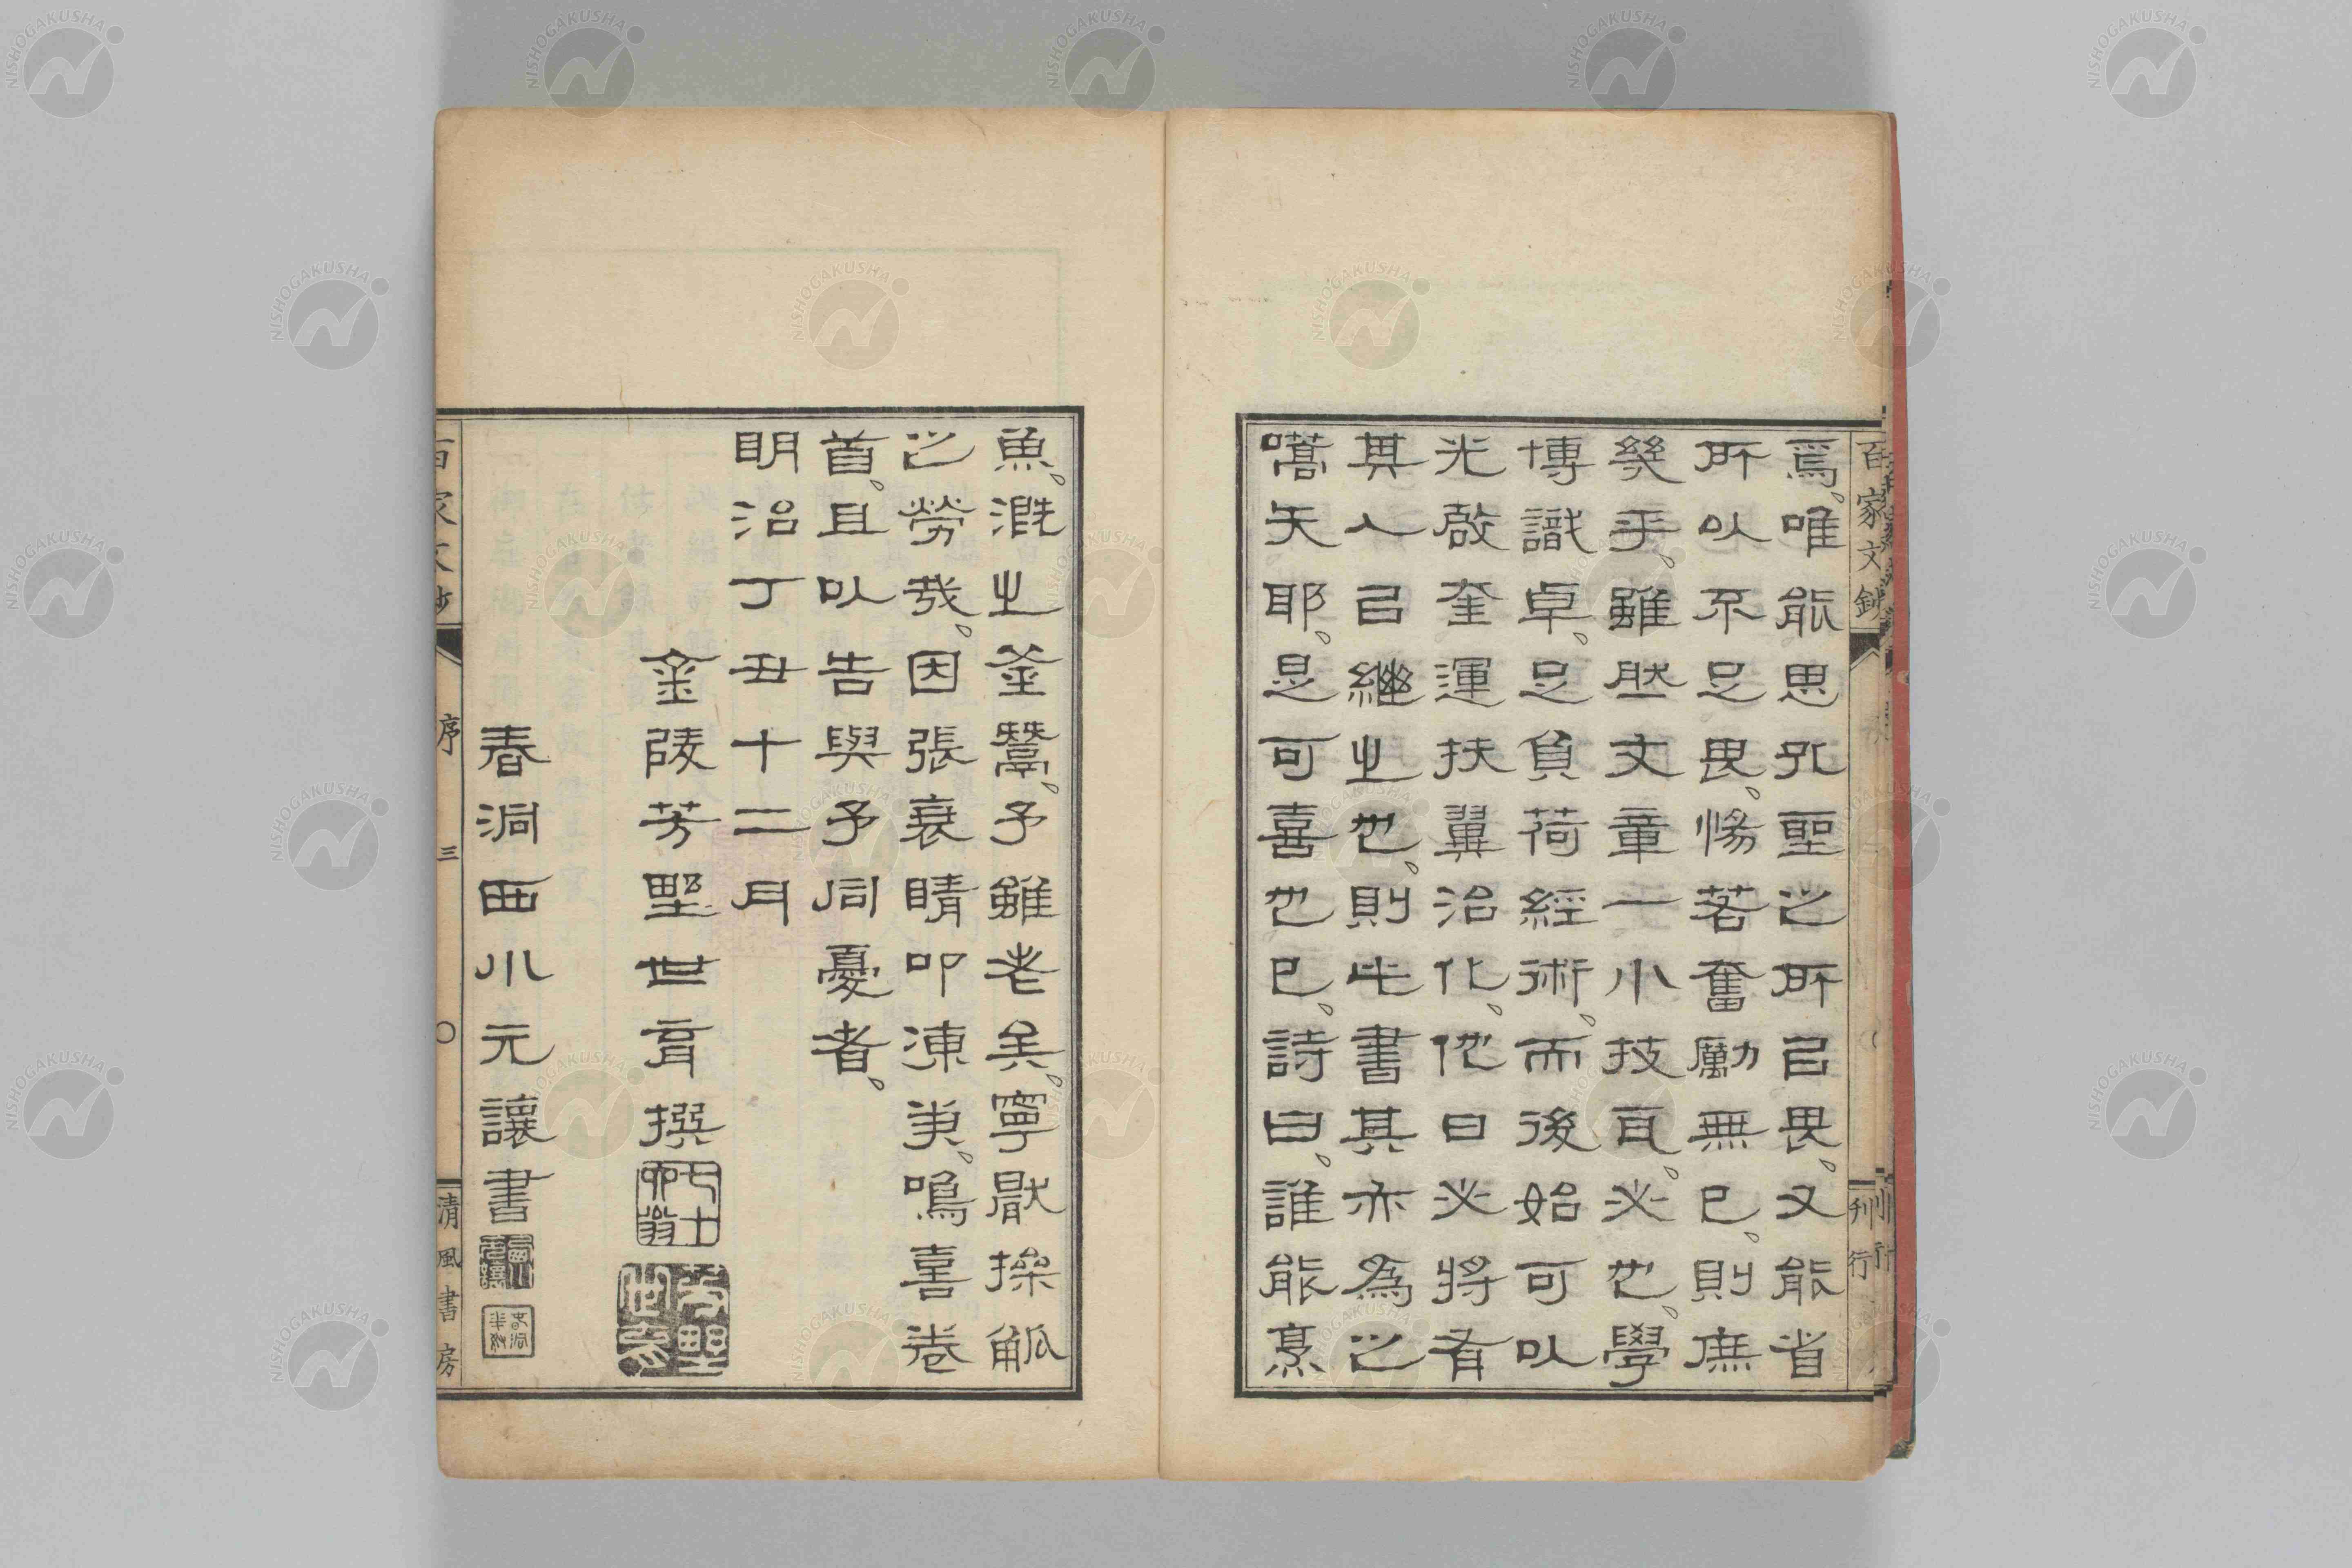 百家文鈔
刊行
焉。唯能思孔聖之所已畏。又能省
所以不足畏。惕若奮勵無已。則庶
幾乎。雖然文章一小技耳。必也。學
博識卓。足負荷經術。而後始可以
光啟奎運扶翼治化。他日必將有
其人已繼之也。則此書其亦為之
嚆矢耶。是可喜也已。詩曰。誰能烹
魚。溉之釜鬵。予雖老矣。寧厭操觚
之勞哉。因張衰睛叩凍硯。嗚喜卷
首。且以告與予同憂者。
明治丁丑十二月
金陵芳野世育撰
春洞西川元讓書
百家文鈔
序
三
清風書房
NISHOGAKUSHA